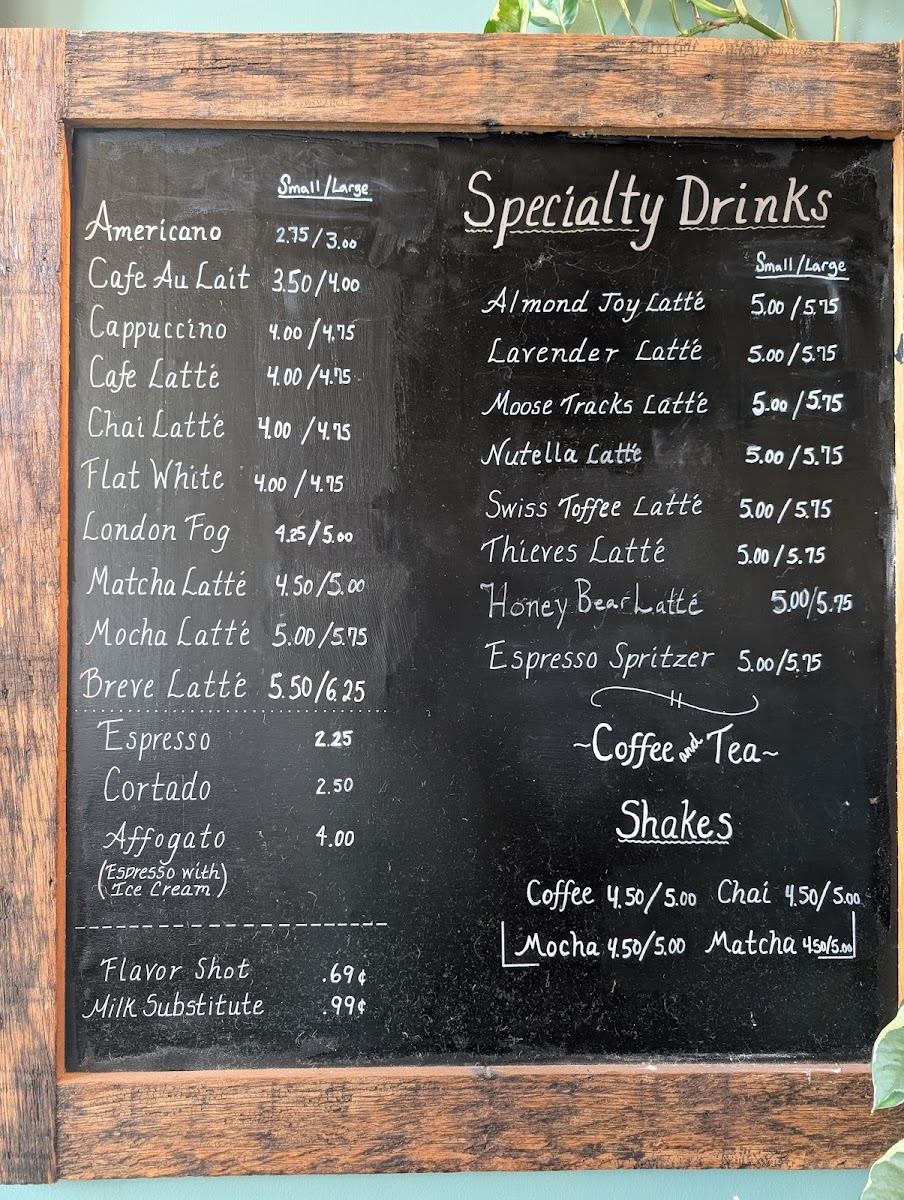 Small/Large
Americano 2.75/3.00
Cafe Au Lait 3.50/4.00
Cappuccino 4.00/4.75
Cafe Latté 4.00/4.75
Chai Latté 4.00/4.75
Flat White 4.00/4.75
London Fog 4.25/5.00
Matcha Latté 4.50/5.00
Mocha Latté 5.00/5.75
Breve Latté 5.50/6.25
Espresso 2.25
Cortado 2.50
Affogato 4.00
(Espresso with
Ice Cream)
Flavor Shot .69¢
Milk Substitute .99¢
Specialty Drinks
Small/Large
Almond Joy Latté 5.00/5.75
Lavender Latté 5.00/5.75
Moose Tracks Latté 5.00/5.75
Nutella Latté 5.00/5.75
Swiss Toffee Latté 5.00/5.75
Thieves Latté 5.00/5.75
Honey Bear Latté 5.00/5.75
Espresso Spritzer 5.00/5.75
~Coffee and Tea~
Shakes
Coffee 4.50/5.00 Chai 4.50/5.00
Mocha 4.50/5.00 Matcha 4.50/5.00